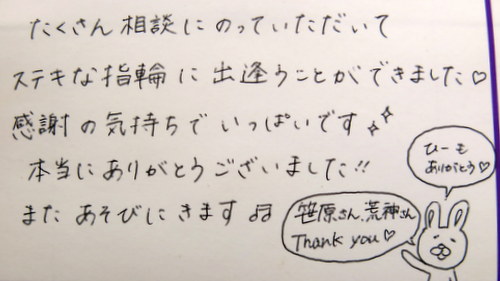 たくさん相談にのっていただいて
ステキな指輪に出逢うことができました♡
感謝の気持ちでいっぱいです
本当にありがとうございました!!
またあそびにきます♫
ひーも
ありがとう♡
笹原さん、荒神さん
Thank you♡